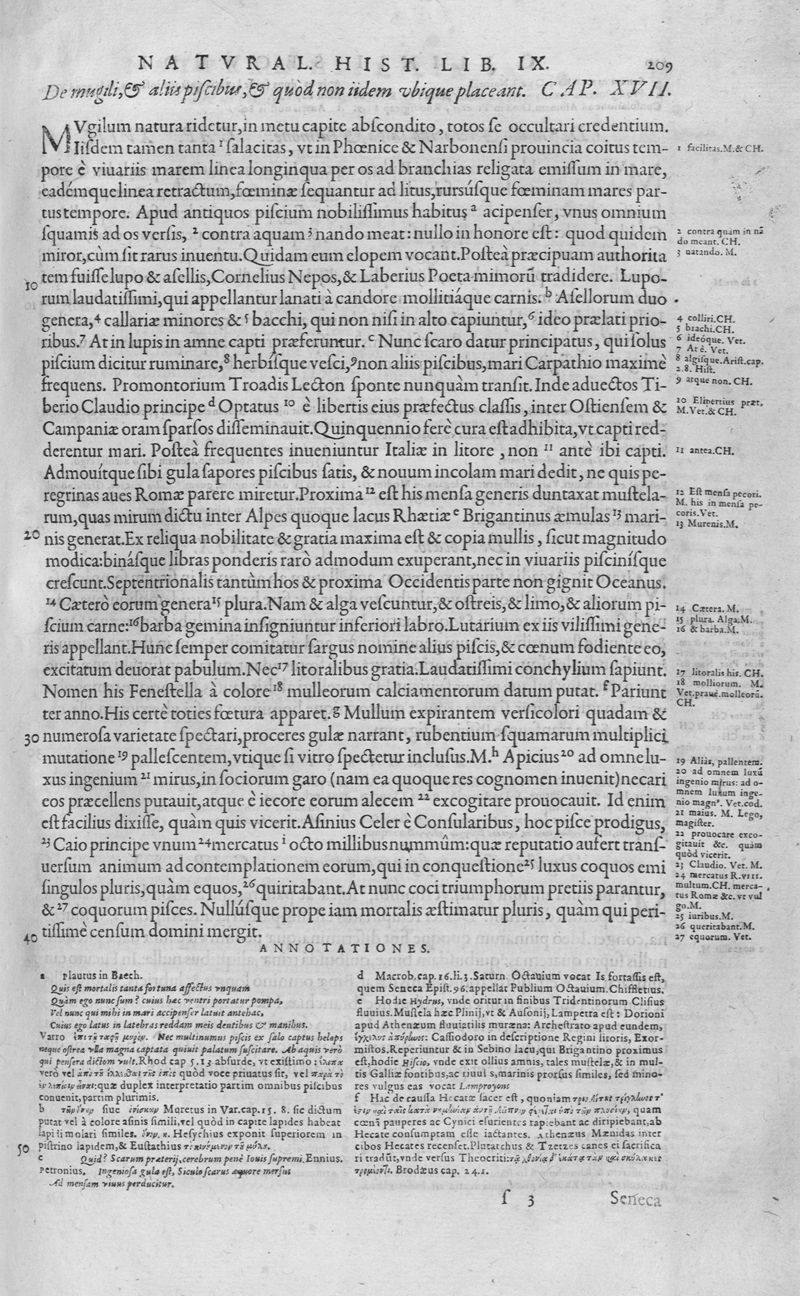 NATVRAL. HIST. LIB. IX. 209
De mugili, & aliis piscibus, & quòd non iidem vbique placeant. CAP. XVII.
MVgilum natura ridetur, in metu capite abscondito, totos se occultari credentium.
Iisdem tamen tanta 1 salacitas, vt in Phœnice & Narbonensi prouincia coitus tem-
pore è viuariis marem linea longinqua per os ad branchias religata emissum in mare,
eademque linea retractum, fœminæ sequantur ad litus, rursúsque fœminam mares par-
tus tempore. Apud antiquos piscium nobilissimus habitus a acipenser, vnus omnium
squamis ad os versis, 2 contra aquam 3 nando meat: nullo in honore est: quod quidem
miror, cùm sit rarus inuentu. Quidam eum elopem vocant. Posteà præcipuam authorita
10 tem fuisse lupo & asellis, Cornelius Nepos, & Laberius Poeta mimorū tradidere. Lupo-
rum laudatissimi, qui appellantur lanati à candore mollitiáque carnis. b Asellorum duo
genera, 4 callariæ minores & 5 bacchi, qui non nisi in alto capiuntur, 6 ideo prælati prio-
ribus. 7 At in lupis in amne capti præferuntur. c Nunc scaro datur principatus, qui solus
piscium dicitur ruminare, 8 herbisque vesci, 9 non aliis piscibus, mari Carpathio maximè
frequens. Promontorium Troadis Lecton sponte nunquàm transit. Inde aduectos Ti-
berio Claudio principe d Optatus 10 è libertis eius præfectus classis, inter Ostiensem &
Campaniæ oram sparsos disseminauit. Quinquennio ferè cura est adhibita, vt capti red-
derentur mari. Posteà frequentes inueniuntur Italiæ in litore, non 11 antè ibi capti.
Admouítque sibi gula sapores piscibus satis, & nouum incolam mari dedit, ne quis pe-
regrinas aues Romæ parere miretur. Proxima 12 est his mensa generis duntaxat mustela-
rum, quas mirum dictu inter Alpes quoque lacus Rhætiæ e Brigantinus æmulas 13 mari-
20 nis generat. Ex reliqua nobilitate & gratia maxima est & copia mullis, sicut magnitudo
modica: binásque libras ponderis rarò admodum exuperant, nec in viuariis piscinísque
crescunt. Septentrionalis tantùm hos & proxima Occidentis parte non gignit Oceanus.
14 Cæterò eorum genera 15 plura. Nam & alga vescuntur, & ostreis, & limo, & aliorum pi-
scium carne: 16 barba gemina insigniuntur inferiori labro. Lutarium ex iis vilissimi gene-
ris appellant. Hunc semper comitatur sargus nomine alius piscis, & cœnum fodiente eo,
excitatum deuorat pabulum. Nec 17 litoralibus gratia. Laudatissimi conchylium sapiunt.
Nomen his Fenestella à colore 18 mulleorum calciamentorum datum putat. f Pariunt
ter anno. His certè toties fœtura apparet. g Mullum expirantem versicolori quadam &
30 numerosa varietate spectari, proceres gulæ narrant, rubentium squamarum multiplici
mutatione 19 pallescentem, vtique si vitro spectetur inclusus. M. h Apicius 20 ad omne lu-
xus ingenium 21 mirus, in sociorum garo (nam ea quoque res cognomen inuenit) necari
eos præcellens putauit, atque è iecore eorum alecem 22 excogitare prouocauit. Id enim
est facilius dixisse, quàm quis vicerit. Asinius Celer è Consularibus, hoc pisce prodigus,
23 Caio principe vnum 24 mercatus i octo millibus nummûm: quæ reputatio aufert trans-
uersum animum ad contemplationem eorum, qui in conquestione 25 luxus coquos emi
singulos pluris, quàm equos, 26 quiritabant. At nunc coci triumphorum pretiis parantur,
& 27 coquorum pisces. Nullúsque prope iam mortalis æstimatur pluris, quàm qui peri-
40 tissimè censum domini mergit.
1 facilitas. M. & CH.
2 contra quam in nā
do meant. CH.
3 natando. M.
4 colliri. CH.
5 brachi. CH.
6 ideóque. Vet.
7 At è. Vet.
8 algisque. Arist. cap.
2. 8. Hist.
9 atque non. CH.
10 Elipertius præt.
M. Vet. & CH.
11 antea. CH.
12 Est mensa pecori.
M. his in mensa pe-
coris. Vet.
13 Murenis. M.
14 Cætera. M.
15 plura. Alga. M.
16 & barba. M.
17 litoralis his. CH.
18 molliorum. M.
Vet. prauè. molleorū.
CH.
19 Aliàs, pallentem.
20 ad omnem luxū
ingenio mirus: ad o-
mnem luxum inge-
nio magn⁹. Vet. cod.
21 maius. M. Lego,
magister.
22 prouocare exco-
gitauit &c. quàm
quòd vicerit.
23 Claudio. Vet. M.
24 mercatus R. VIII.
multum. CH. merca-
tus Romæ &c. vt vul
go. M.
25 iuribus. M.
26 queritabant. M.
27 equorum. Vet.
ANNOTATIONES.
a Plautus in Baech.
Quis est mortalis tanta fortuna affectus vnquam
Quàm ego nunc sum? cuius hæc ventri portatur pompa,
Vel nunc qui mihi in mari accipenser latuit antehac,
Cuius ego latus in latebras reddam meis dentibus & manibus.
Varro Nec multinumus piscis ex salo captus helops
neque ostrea vlla magna captata quiuit palatum suscitare. Ab aquis verò
qui pensera dictum vult. Rhod cap 5. 13 absurde, vt existimo:
verò vel quòd voce priuatus sit, vel
quæ duplex interpretatio partim omnibus piscibus
conuenit, partim plurimis.
b siue Muretus in Var. cap. 15. 8. sic dictum
putat vel à colore asinis simili, vel quòd in capite lapides habeat
lapi i i molari similes. Hesychius exponit superiorem in
50 pistrino lapidem, & Eustathius
c Quid? Scarum præterij, cerebrum penè Iouis supremi. Ennius.
Petronius, Ingeniosa gula est, Siculo scarus æquore mersus
Ad mensam viuus perducitur.
d Macrob. cap. 16. li. 3. Saturn. Octauium vocat Is fortassis est,
quem Seneca Epist. 96. appellat Publium Octauium. Chiffletius.
e Hodie Hydrus, vnde oritur in finibus Tridentinorum Clisius
fluuius. Mustela hæc Plinij, vt & Ausonij, Lampetra est: Dorioni
apud Athenæum fluuiatilis muræna: Archestrato apud eundem,
Cassiodoro in descriptione Regini litoris, Exor-
mistos. Reperiuntur & in Sebino lacu, qui Brigantino proximus
est, hodie Hiscio, vnde exit ollius amnis, tales mustelæ, & in mul-
tis Galliæ fontibus, ac riuulis, marinis prorsus similes, sed mino-
res vulgus eas vocat Lamproyons
f Hæc de causa Hecatæ sacer est, quoniam
quam
cœnā pauperes ac Cynici esurientes rapiebant ac diripiebant, ab
Hecate consumptam esse iactantes. Athenæus Mænidas inter
cibos Hecates recenset. Plutarchus & Tzetzes canes ei sacrifica
ri tradūt, vnde versus Theocriti:
Brodæus cap. 24. 1.
f 3 Seneca